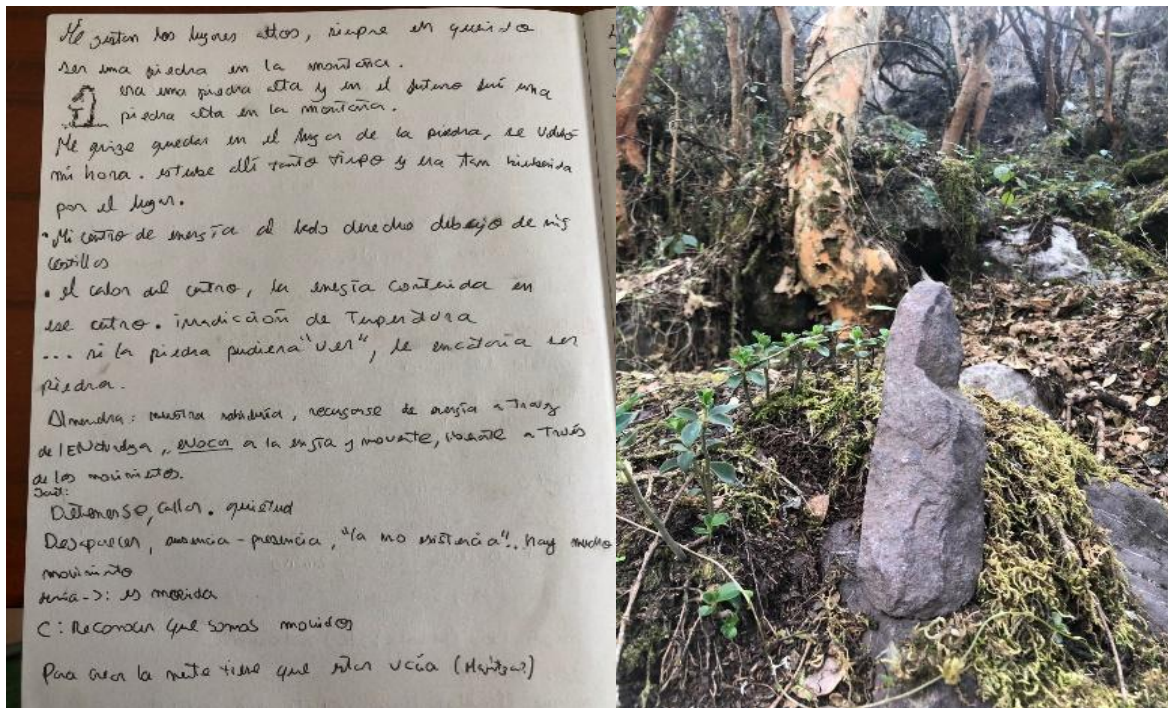 Me gustan los lugares altos, siempre eh querido
ser una piedra en la montaña.
era una piedra alta y en el futuro seré una
piedra alta en la montaña.
Me quize quedar en el lugar de la piedra, se volvió
mi hora. estube allí tanto tiempo y era tan
por el lugar.
• Mi centro de energía al lado derecho debajo de mis
costillas
• el calor del centro, la energía contenida en
ese centro. irradicción de Temperatura
... si la piedra pudiera "ver", le encataria ser
piedra.
Almendra: nuestra sabiduría, recargarse de energía a Travez
de la evocar a la energía y moverte, a Través
de los movimientos.
Detenerse, callar. quietud
Desaparecer, ausencia - presencia, "la no existencia". hay mucho
movimiento
-> : es movida
C: Reconocer que somos movidos
Para crear la mente tiene que estar vacía (Maritzar)